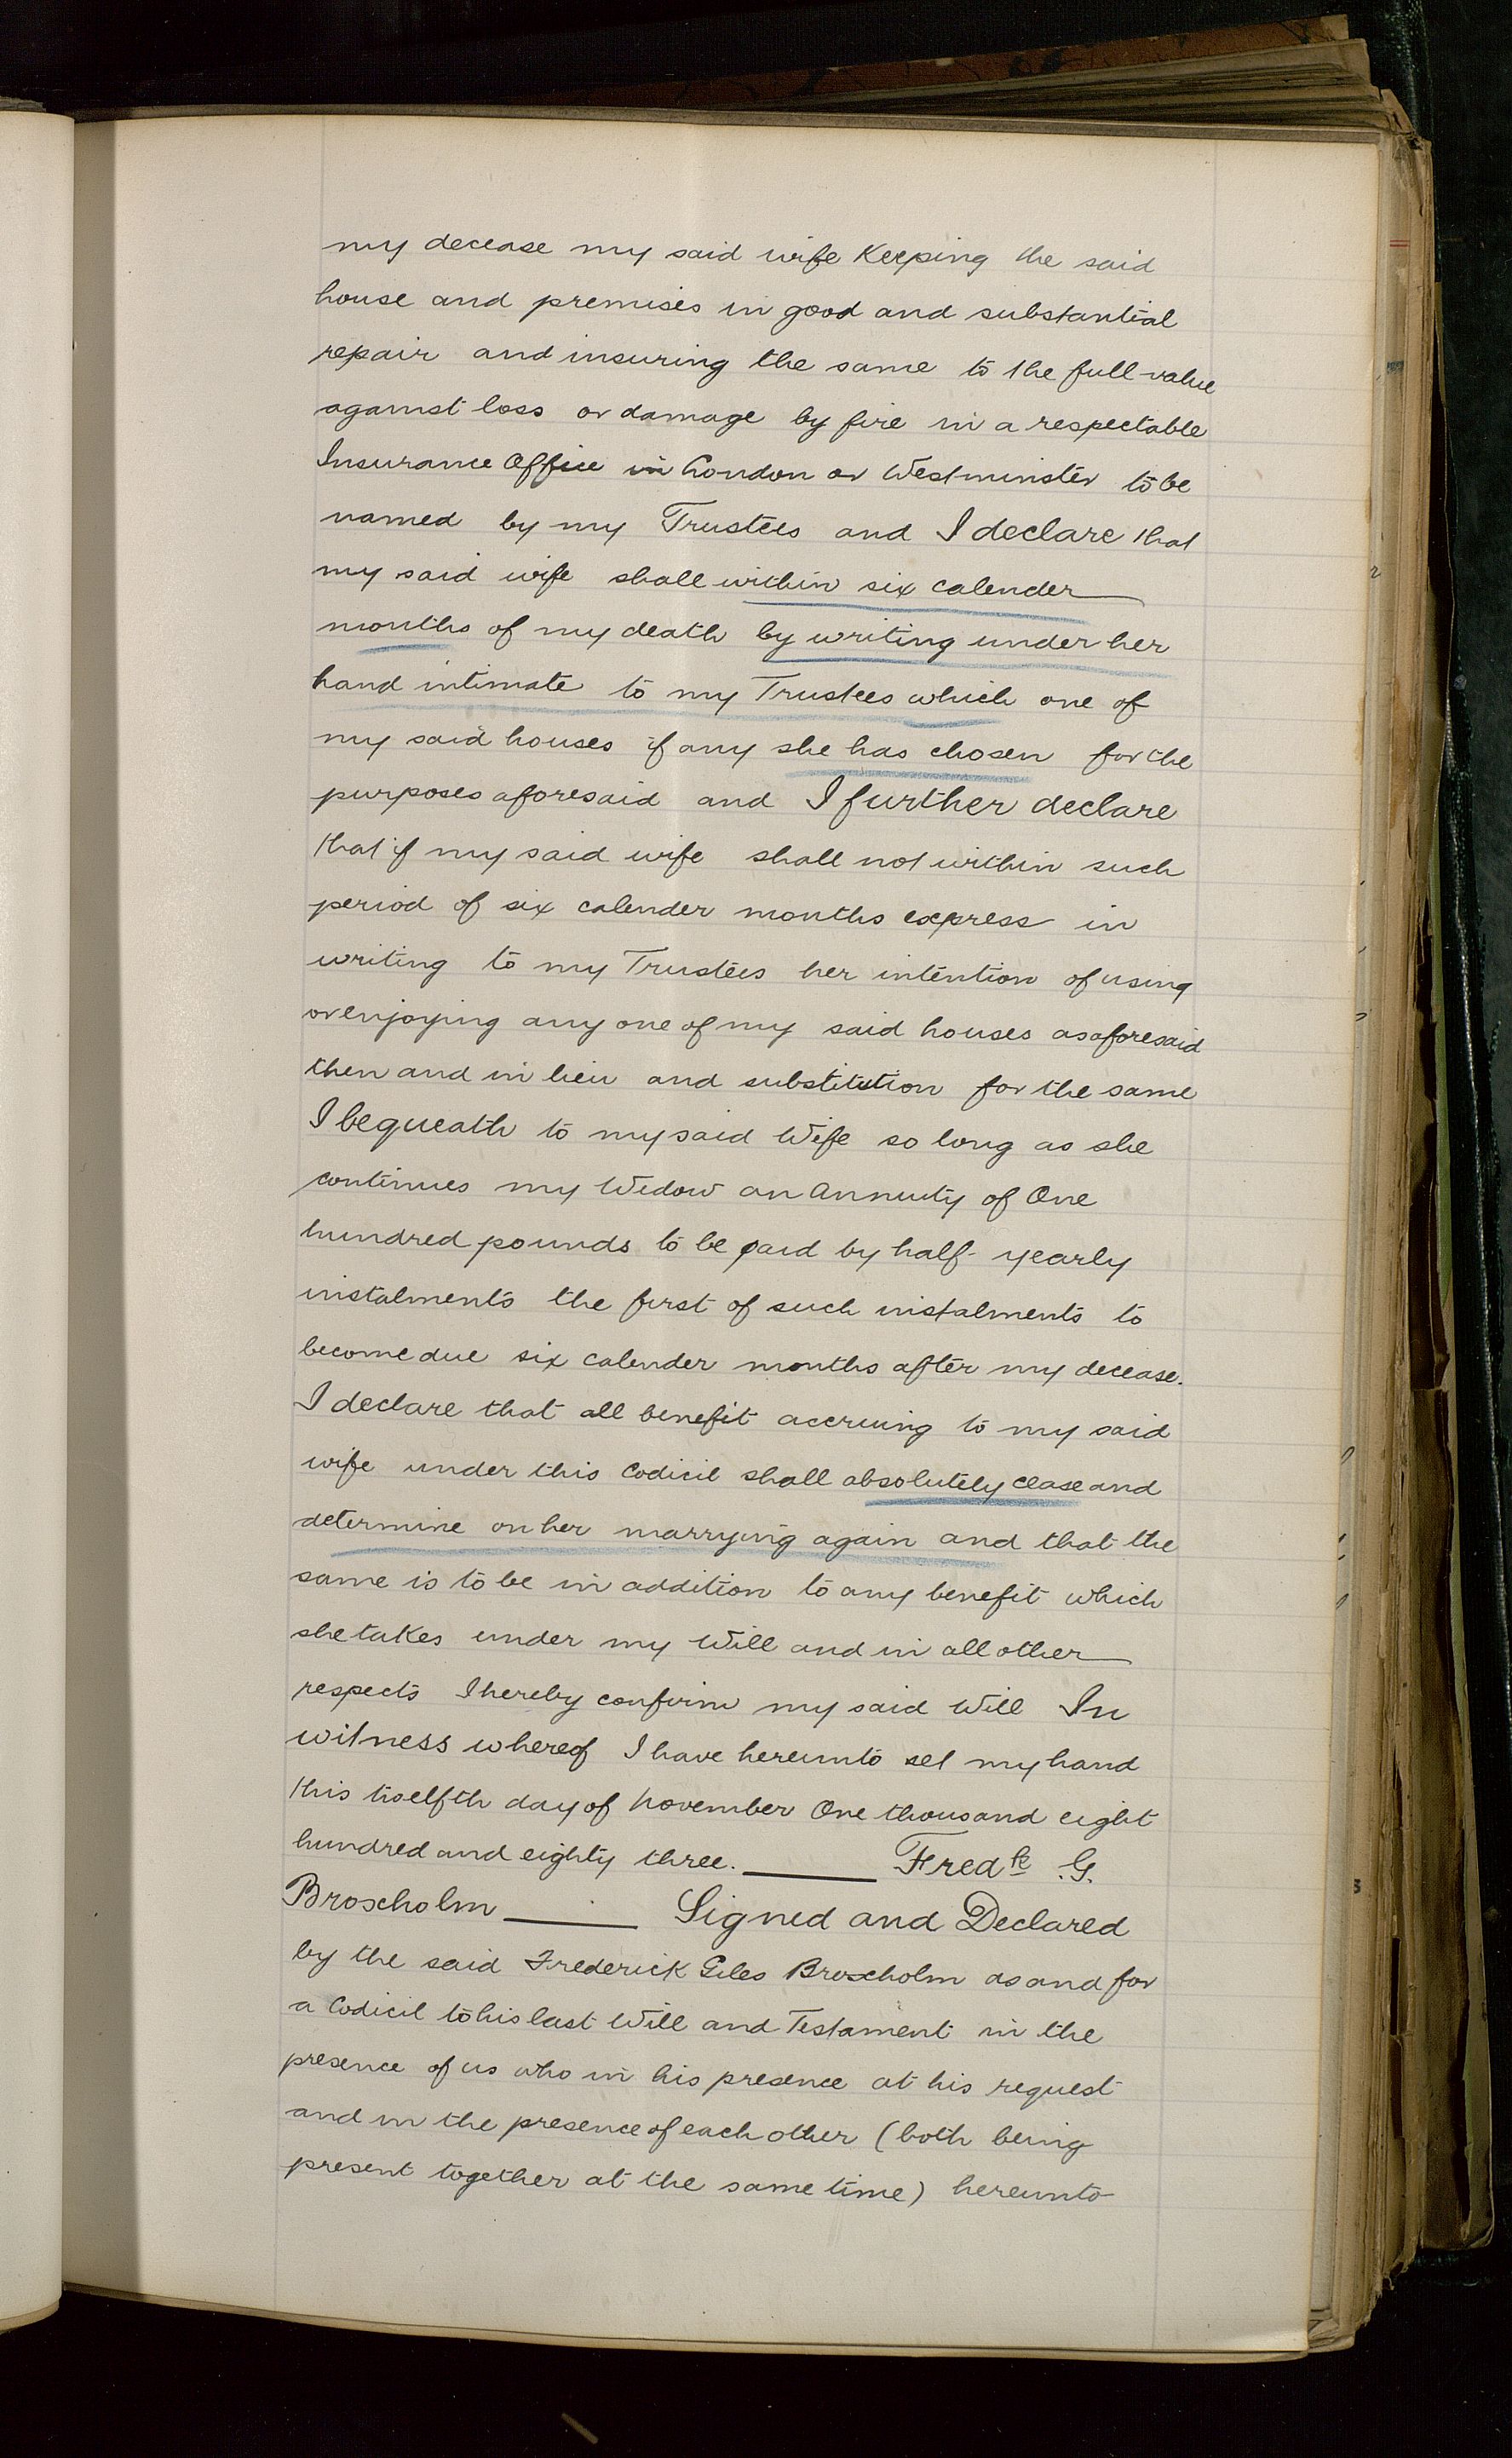 my decease my said wife Keeping the said
house and premises in good and substantial
repair and insuring the same to the full value
against loss or damage by fire in a respectable
Insurance Office in London or Westminster to be
named by my Trustees and I declare that
my said wife shall within six calender
months of my death by writing under her
hand intimate to my Trustees which one of
my said houses if any she has chosen for the
purposes aforesaid and I further declare
that if my said wife shall not within such
period of six calender months express in
writing to my Trustees her intention of using
or enjoying any one of my said houses as aforesaid
then and in lieu and substitution for the same
I bequeath to my said Wife so long as she
continues my Widow an Annuity of One
hundred pounds to be paid by half-yearly
instalments the first of such instalments to
become due six calender months after my decease.
I declare that all benefit accruing to my said
wife under this Codicil shall absolutely cease and
determine on her marrying again and that the
same is to be in addition to any benefit which
she takes under my Will and in all other
respects I hereby confirm my said Will In
witness whereof I have hereunto set my hand
this twelfth day of November One thousand eight
hundred and eighty three. Fredk G.
Broxholm Signed and Declared
by the said Frederick Giles Broxholm as and for
a Codicil to his last Will and Testament in the
presence of us who in his presence at his request
and in the presence of each other (both being
present together at the same time) hereunto